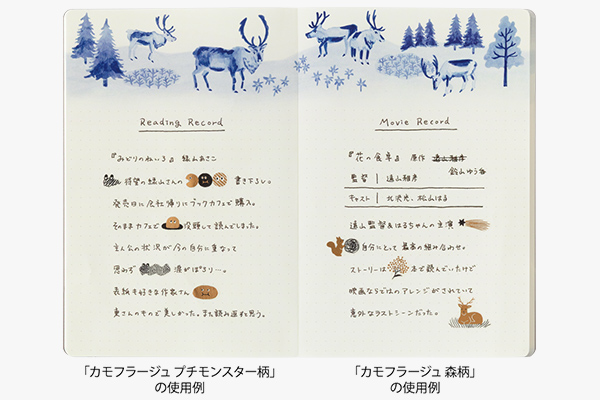 Reading Record
『みどりのねいろ』 緑山あさこ
待望の緑山さんの 書き下ろし。
発売日に会社帰りにブックカフェで購入。
そのままカフェで 没頭して読んでしまった。
主人公の状況が今の自分に重なって
思わず 涙がぽろり…。
表紙も好きな作家さん
奥さんのもので美しかった。また読み返すと思う。
Movie Record
『花の食卓』 原作 遠山雅彦
鈴山ゆう海
監督 遠山雅彦
キャスト 北沢光、松山はる
遠山監督&はるちゃんの主演
自分にとって最高の組み合わせ。
ストーリーは 本で読んでいたけど
映画ならではのアレンジがされていて
意外なラストシーンだった。
「カモフラージュ プチモンスター柄」
の使用例
「カモフラージュ 森柄」
の使用例